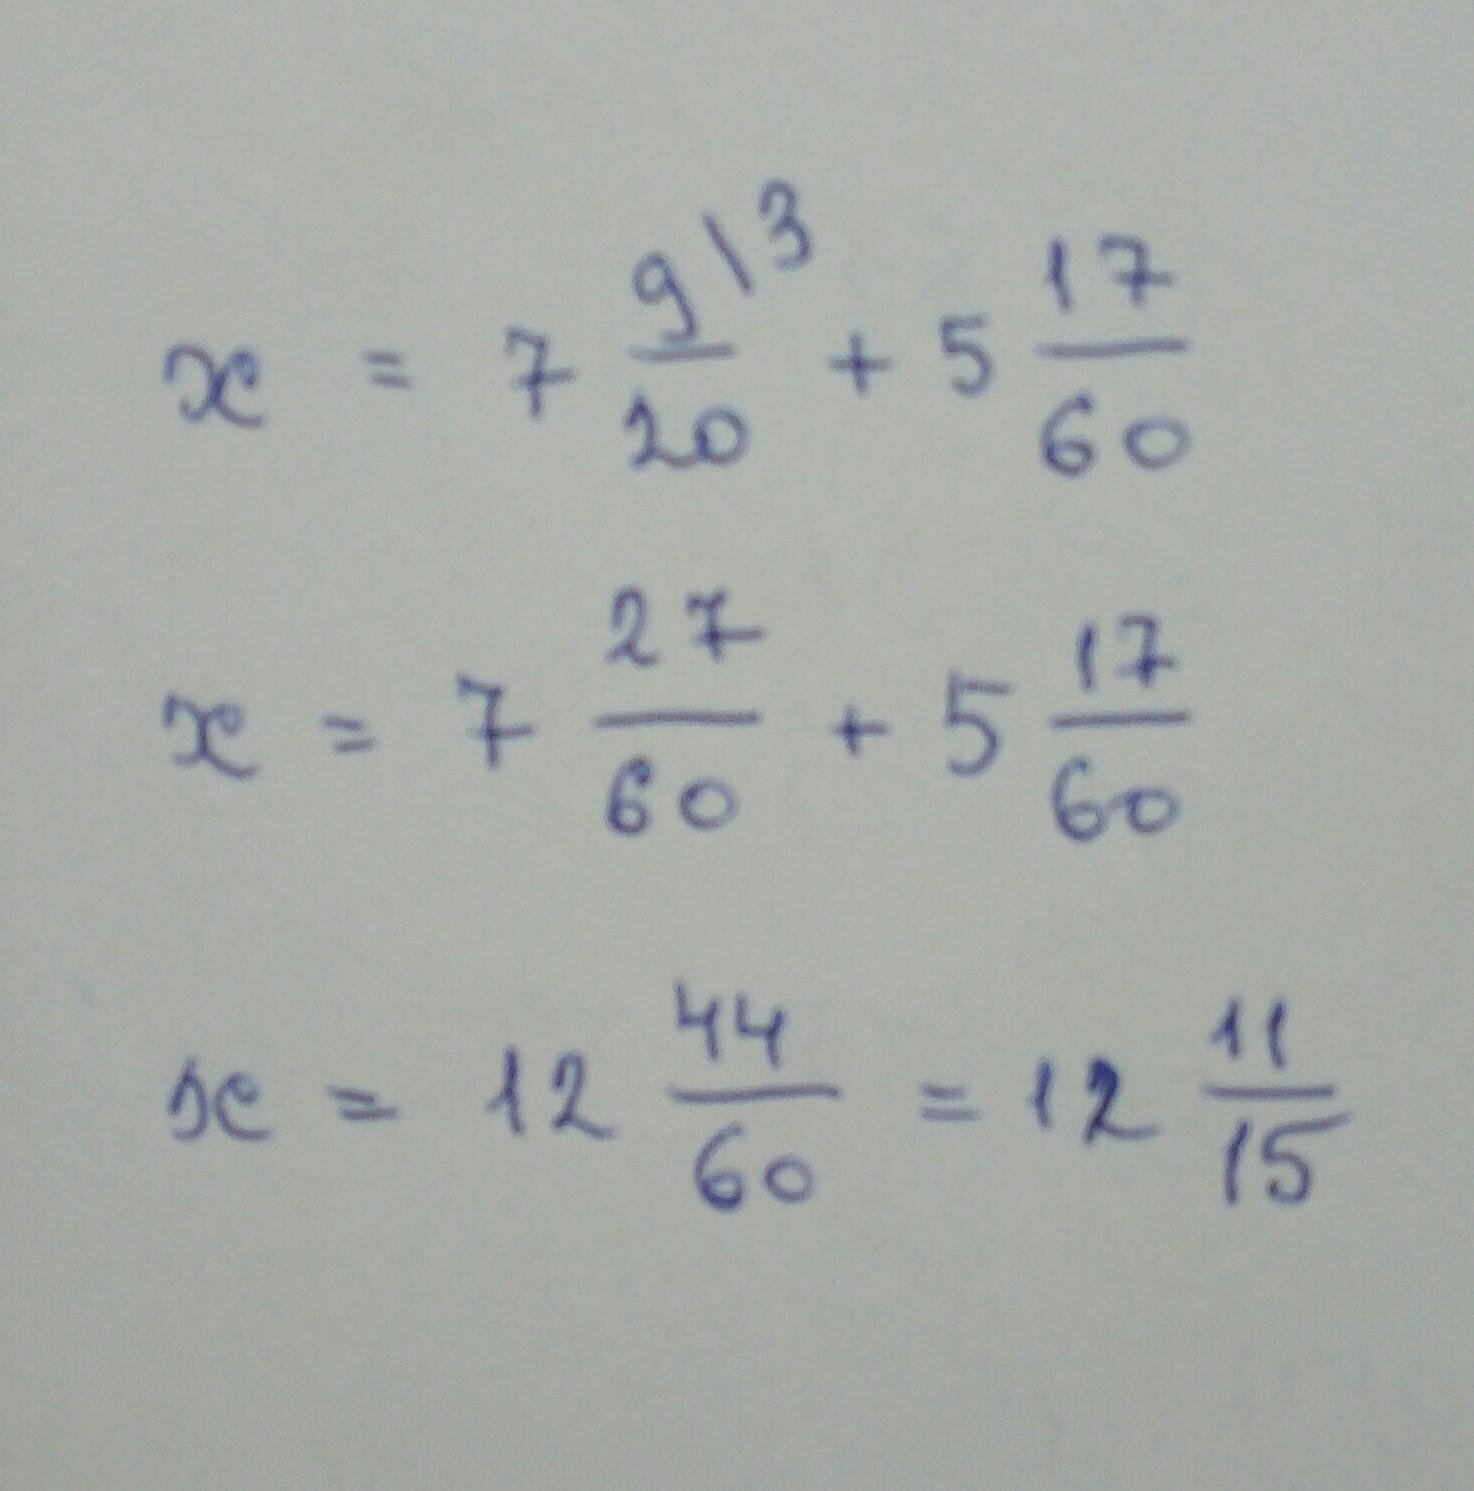 x = 7 9\3/20 + 5 17/60
x = 7 27/60 + 5 17/60
x = 12 44/60 = 12 11/15